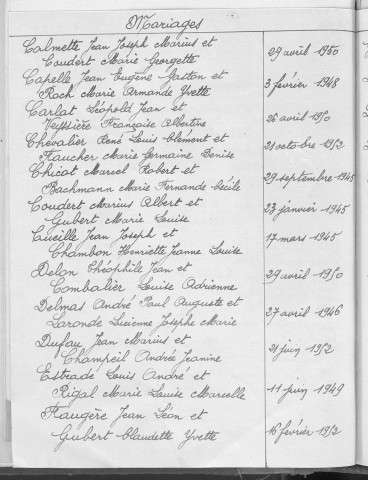 Mariages
Calmette Jean Joseph Marius et
Coudert Marie Georgette 29 avril 1950
Capelle Jean Eugène Gaston et
Roch Marie Armande Yvette 3 février 1948
Carlat Léopold Jean et
Veyssière Française Albertine 26 avril 1950
Chevalier René Louis Clément et
Faucher Marie Germaine Denise 21 octobre 1952
Chicot Marcel Robert et
Bachmann Marie Fernande Cécile 29 septembre 1945
Coudert Marius Albert et
Gubert Marie Louise 23 janvier 1945
Cueille Jean Joseph et
Chambon Henriette Jeanne Louise 17 mars 1945
Delon Théophile Jean et
Combalier Louise Adrienne 29 avril 1950
Delmas André Paul Auguste et
Laronde Lucienne Josephe Marie 27 avril 1946
Dufau Jean Marius et
Champeil Andrée Jeanine 21 juin 1952
Estrade Louis André et
Rigal Marie Louise Marcelle 11 juin 1949
Fraugère Jean Léon et
Gubert Claudette Yvette 16 février 1952